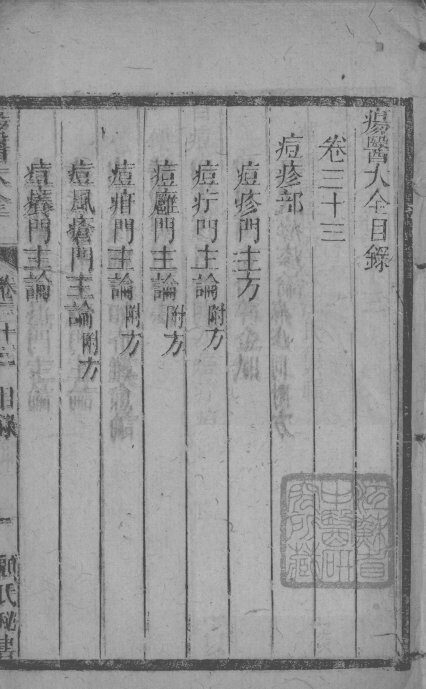 瘍醫大全目錄
卷三十三
痘疹部
痘疹門主方
痘疔門主論附方
痘癰門主論附方
痘疳門主論附方
痘風瘡門主論附方
痘癢門主論
瘍醫大全
卷三十三 目錄
一
江蘇省
中醫研
究所藏